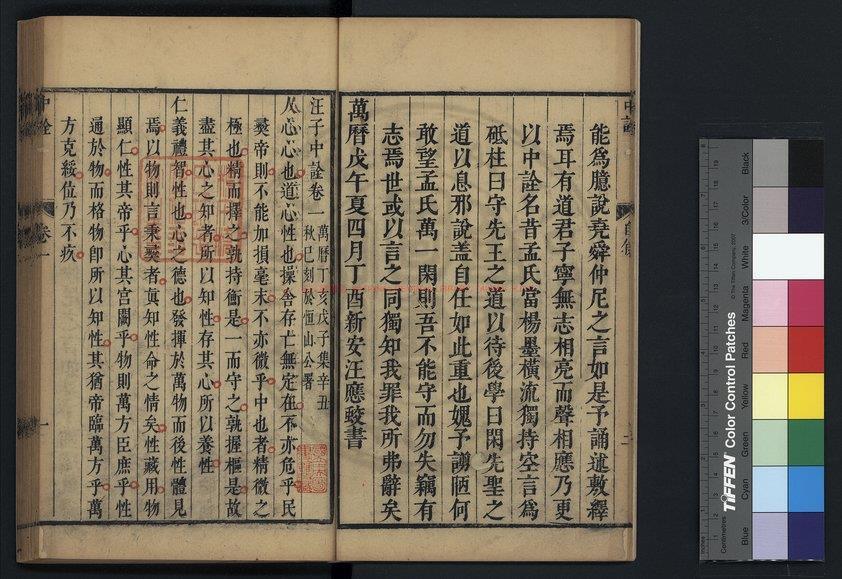 能為臆說堯舜仲尼之言如是予誦述敷繹
焉耳有道君子寧無志相亮而聲相應乃更
以中詮名昔孟氏當楊墨橫流獨持空言為
砥柱曰守先王之道以待後學曰閑先聖之
道以息邪說蓋自任如此重也媿予謭陋何
敢望孟氏萬一閑則吾不能守而勿失竊有
志焉世或以言之同獨知我罪我所弗辭矣
萬曆戊午夏四月丁酉新安汪應蛟書
汪子中詮卷一
萬曆丁亥戊子集辛丑
秋巳刻於恒山公署
人心心也道心性也操舍存亡無定在不亦危乎民
彞帝則不能加損毫末不亦微乎中也者精微之
極也精而擇之孰持衡是一而守之孰握樞是故
盡其心之知者所以知性存其心所以養性
仁義禮智性也心之德也發揮於萬物而後性體見
焉以物則言秉彞者真知性命之情矣性藏用物
顯仁性其帝乎心其宫闕乎物則萬方臣庶乎性
通於物而格物卽所以知性其猶帝臨萬方乎萬
方克綏位乃不疚
中詮
卷一
一
Inches
Centimetres
TIFFEN Color Control Patches
© The Tiffen Company, 2007
Blue
Cyan
Green
Yellow
Red
Magenta
White
3/Color
Black